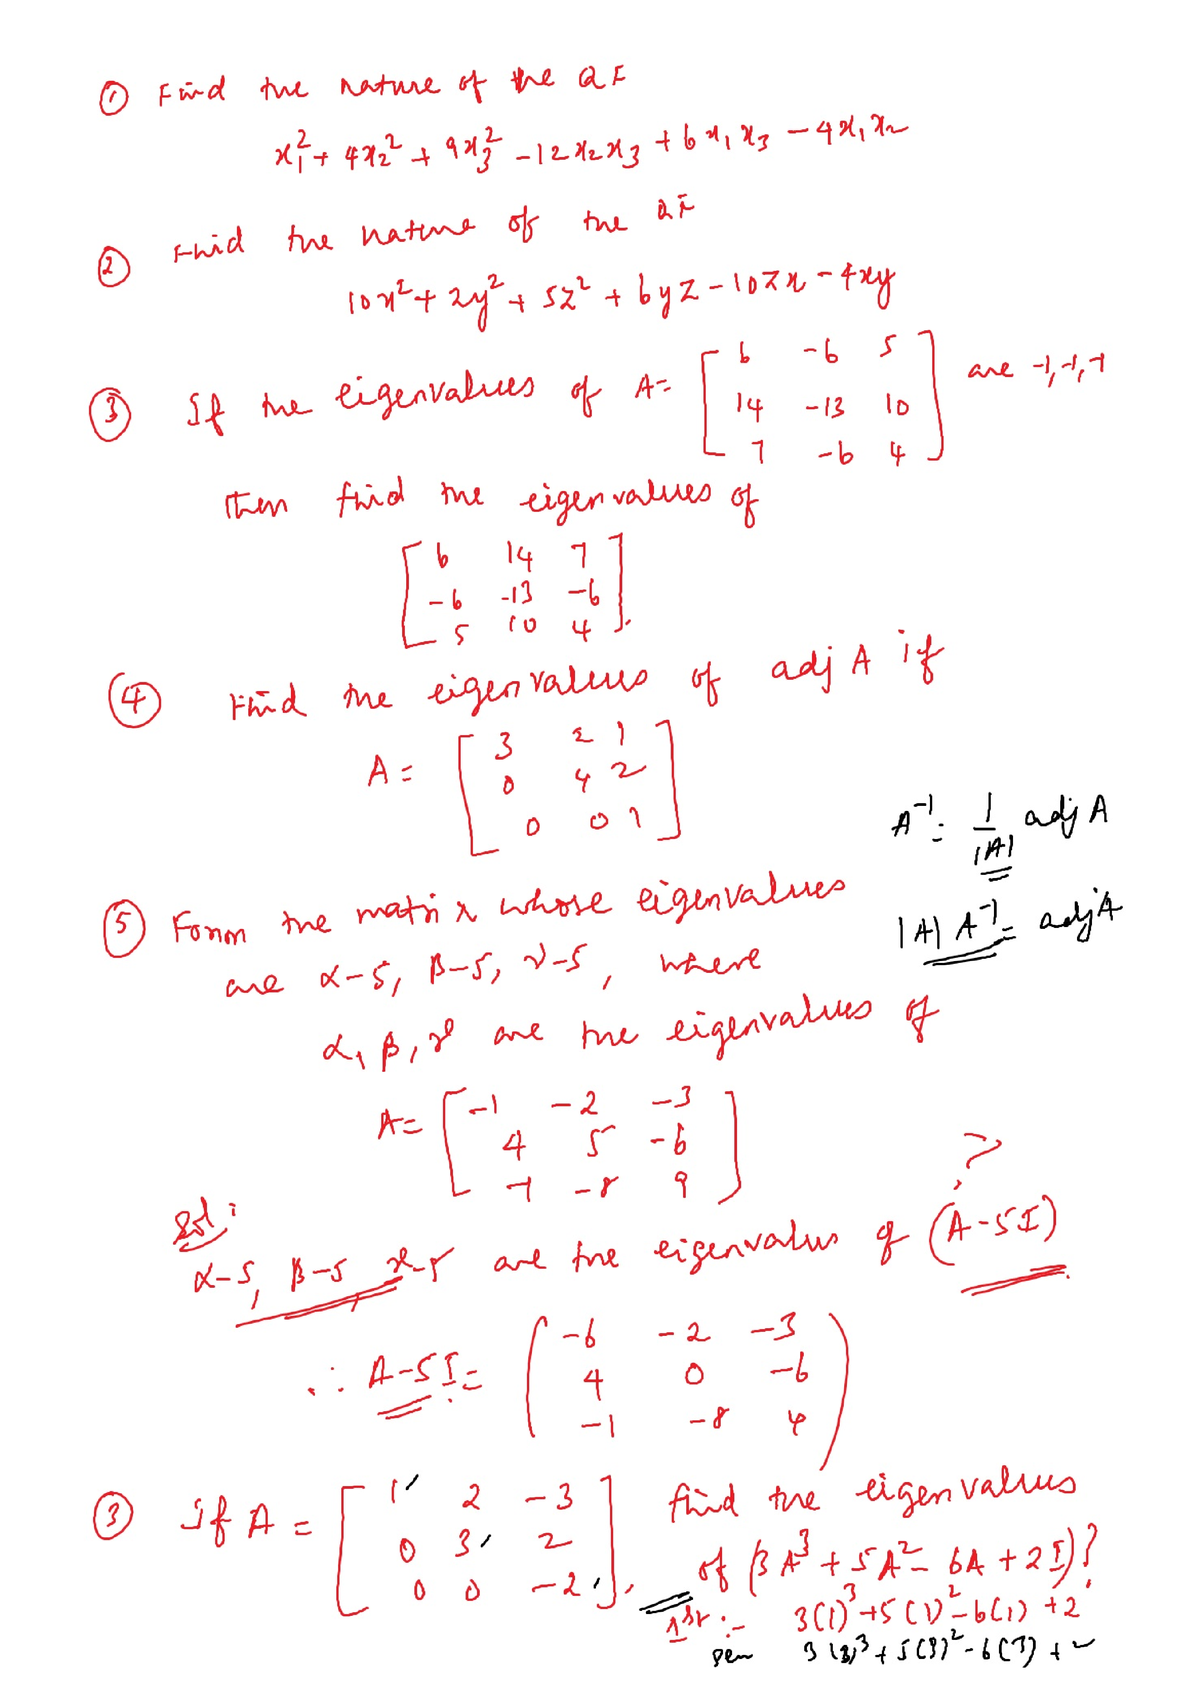 ① Find the nature of the QF
x₁² + 4x₂² + 9x₃² - 12x₂x₃ + 6x₁x₃ - 4x₁x₂
② Find the nature of the QF
10x² + 2y² + 5z² + 6yz - 10zx - 4xy
③ If the eigenvalues of A = [ 6 -6 5 ] are -1, -1, -1
14 -13 10
7 -6 4
then find the eigenvalues of
[ 6 14 7 ]
-6 -13 -6
5 10 4 .
④ Find the eigenvalues of adj A if
A = [ 3 2 1 ]
0 4 2
0 0 1
A⁻¹ = 1/|A| adj A
⑤ Form the matrix whose eigenvalues
|A| A⁻¹ = adj A
are α-5, β-5, γ-5, where
α, β, γ are the eigenvalues of
A = [ -1 -2 -3 ]
4 5 -6
7 -8 9
?
Sol:
α-5, β-5 γ-5 are the eigenvalues of (A-5I)
∴ A-5I = ( -6 -2 -3 )
4 0 -6
-1 -8 4
③ If A = [ 1 2 -3 ] find the eigenvalues
0 3 2
0 0 -2 , of (3A³ + 5A² - 6A + 2I)?
1st :- 3(1)³ + 5(1)² - 6(1) + 2
3(3)³ + 5(3)² - 6(3) + 2